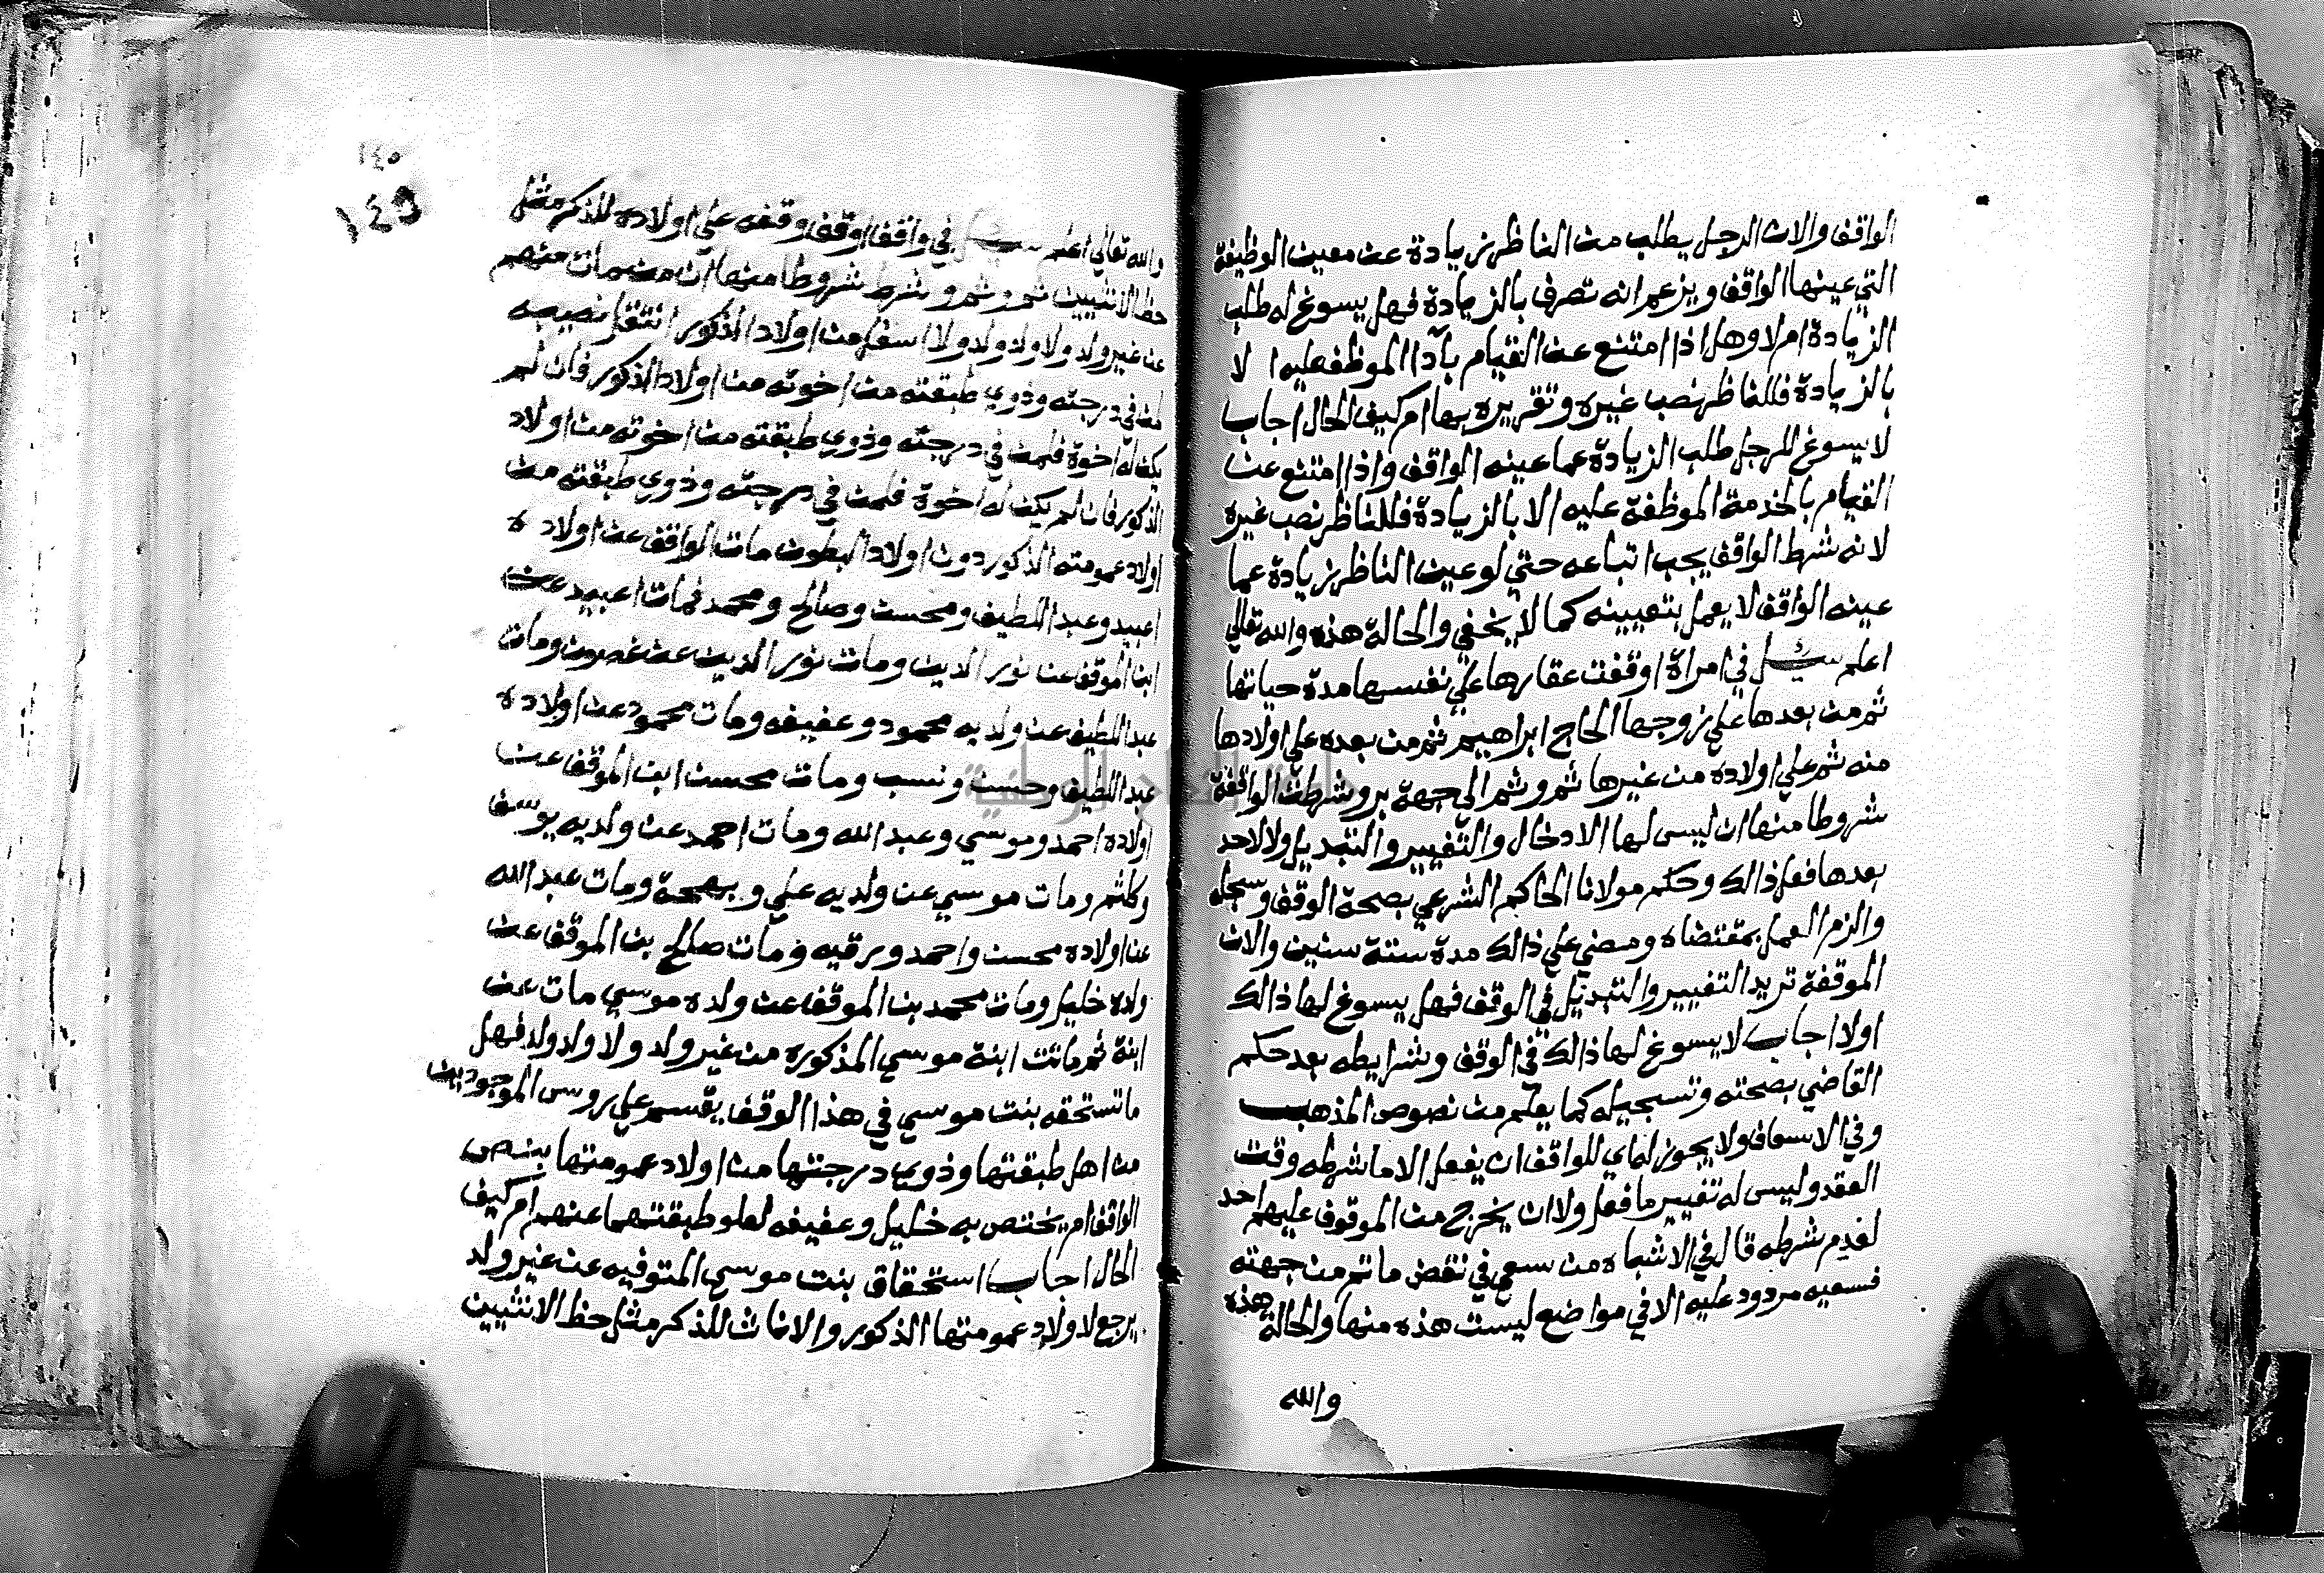 الواقف والان الرجل يطلب من الناظر زيادة عن معين الوظيفة
التي عينها الواقف ويزعم انه تصرف بالزيادة فهل يسوغ له طلب
الزيادة ام لا وهل اذا امتنع عن القيام بآداا الموظف عليه الا
بالزيادة فللناظر نصب غيره وتقريره بها ام كيف الحال اجاب
لا يسوغ للرجل طلب الزيادة عما عينه الواقف واذا امتنع عن
القيام بالخدمة الموظفة عليه الا بالزيادة فللناظر نصب غيره
لانه شرط الواقف يجب اتباعه حتي لو عين الناظر زيادة عما
عينه الواقف لا يعمل بتعيينه كما لا يخفي والحالة هذه والله تعالي
اعلم سئل في امراة اوقفت عقارها علي نفسها مدة حياتها
ثم من بعدها علي زوجها الحاج ابراهيم ثم من بعده علي اولادها
منه ثم علي اولاده من غيرها ثم وثم الي جهة بر وشرطت الواقفة
شروطا منها ان ليس لها الادخال والتغيير والتبديل ولا لاحد
بعدها فعل ذالك وحكم مولانا الحاكم الشرعي بصحة الوقف وسجله
والزم العمل بمقتضاه ومضي علي ذالك مدة ستة سنين والان
الموقفة تريد التغيير والتبديل في الوقف فهل يسوغ لها ذالك
اولا اجاب لا يسوغ لها ذالك في الوقف وشرايطه بعد حكم
القاضي بصحته وتسجيله كما يعلم من نصوص المذهب
وفي الاسعاف ولا يجوز لماي للواقف ان يفعل الا ما شرطه وقت
العقد وليس له تغيير ما فعل ولا ان يخرج من الموقوف عليهم احد
لقديم شرطه قال في الاشباه من سعي في نقض ما تم من جهته
فسعيه مردود عليه الا في مواضع ليست هذه منها والحالة هذه
والله
١٤٥
١٤٩
والله تعالي اعلم سئل في واقف اوقف وقفه علي اولاده للذكر مثل
حظ الانثيين ثم وثم وشرط شروطا منها ان من مات منهم
عن غير ولد ولا ولد ولد ولا اسفل من اولاد الذكور انتقل نصيبه
لمن في درجته وذوي طبقته من اخوته من اولاد الذكور فان لم
يكن له اخوة فلمن في درجته وذوي طبقته من اخوته من اولاد
الذكور فان لم يكن له اخوة فلمن في درجته وذوي طبقته من
اولاد عمومته الذكور دون اولاد البطون مات الواقف عن اولاده
اعبيد وعبد اللطيف ومحسن وصالح ومحمد فمات اعبيد عن
ابن الموقف عن نور الدين ومات نور الدين عن غصون ومات
عبد اللطيف عن ولديه محمود وعفيفه ومات محمود عن اولاده
عبد اللطيف وحسن ونسب ومات محسن ابن الموقف عن
اولاده احمد وموسي وعبد الله ومات احمد عن ولديه يوسف
وكلثم ومات موسي عن ولديه علي وبهجة ومات عبد الله
عن اولاده محسن واحمد ورقيه ومات صالح بن الموقف عن
ولده خليل ومات محمد بن الموقف عن ولده موسي مات عن
ابنة ثم ماتت ابنة موسي المذكوره من غير ولد ولا ولد ولد فهل
ما تستحقه بنت موسي في هذا الوقف يقسم علي روس الموجودين
من اهل طبقتها وذوي درجتها من اولاد عمومتها بنص
الواقف ام يختص به خليل وعفيفه لعلو طبقتهما عنهم ام كيف
الحال اجاب استحقاق بنت موسي المتوفيه عن غير ولد
يرجع لاولاد عمومتها الذكور والاناث للذكر مثل حظ الانثيين